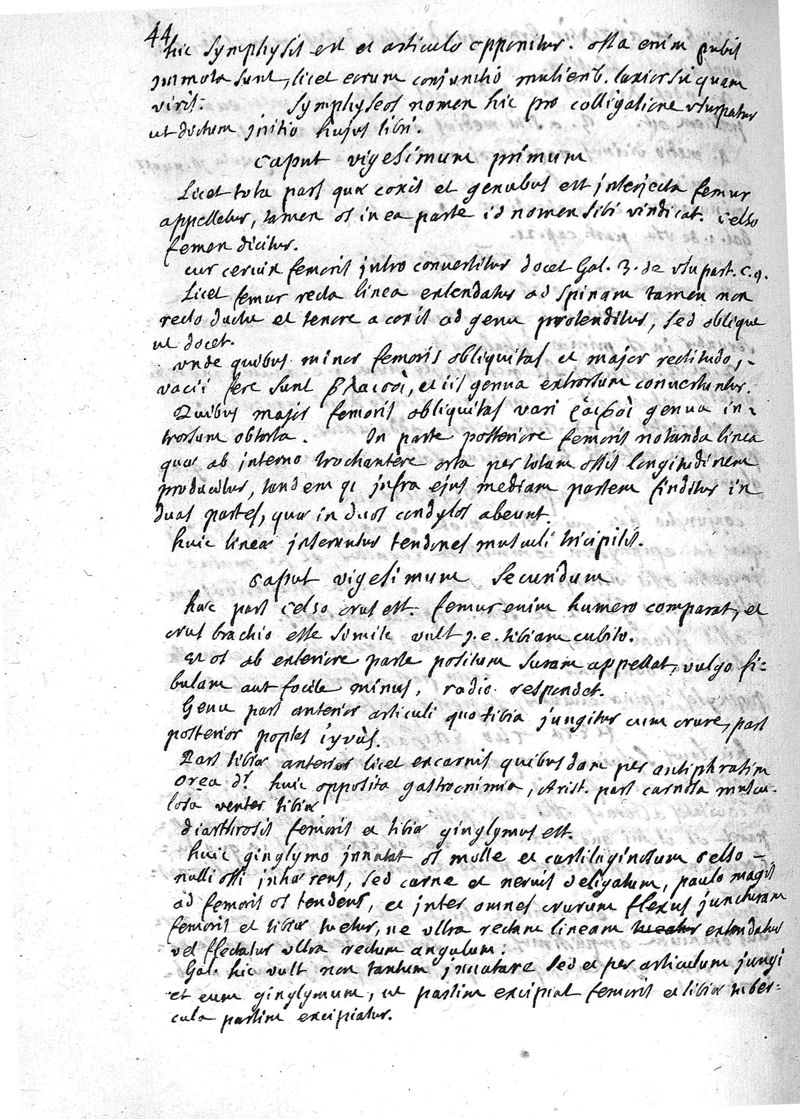 44
hic symphysis est et articulo opponitur. ossa enim pubis
immota sunt, licet eorum conjunctio mulierib. laxior sit quam
viris. Symphyseos nomen hic pro colligatione usurpatur
ut dictum initio hujus libri.
caput vigesimum primum
Licet tota pars quae coxis et genubus est interjecta femur
appelletur, tamen os in ea parte id nomen sibi vindicat. Celso
femen dicitur.
cur cervix femoris intro convertitur docet Gal. 3. de usu part. c. 9.
Licet femur recta linea extendatur ad spinam tamen non
recto ductu et tenore a coxis ad genu protenditur, sed oblique
ut docet.
unde quibus minor femoris obliquitas et major rectitudo,
vacii fere sunt βλαισοὶ, et iis genua extrorsum convertuntur.
Quibus major femoris obliquitas vari ῥαιβοὶ genua in-
trorsum obtorta. In parte posteriore femoris notanda linea
quae ab interno trochantere orta per totam ossis longitudinem
producitur, tandem infra ejus mediam partem finditur in
duas partes, quae in duos condylos abeunt.
huic lineae inseruntur tendones musculi tricipitis.
caput vigesimum secundum
haec pars Celso crus est. femur enim humero comparat, et
crus brachio esse simile vult j.e. tibiam cubito.
et os ab exteriore parte positum suram appellat, vulgo fi-
bulam aut focile minus, radio respondet.
Genu pars anterior articuli quo tibia jungitur cum crure, pars
posterior poples ἰγνὺς.
Pars tibiae anterior licet excarnis quibusdam per antiphrasim
ocrea dr. huic opposita gastrocnimia, Arist. pars carnosa muscu-
losa venter tibiae
diarthrosis femoris et tibiae ginglymus est.
huic ginglymo innatat os molle et cartilaginosum celso -
nulli ossi inhaerens, sed carne et nervis deligatum, paulo magis
ad femoris os tendens, et inter omnes crurum flexus juncturam
femoris et tibiae tuetur, ne ultra rectam lineam tueatur extendatur
vel flectatur ultra rectum angulum.
Gal. hic vult non tantum innatare sed et per articulum jungi
et eum ginglymum, ut partim excipiat femoris et tibiae tuber-
cula partim excipiatur.